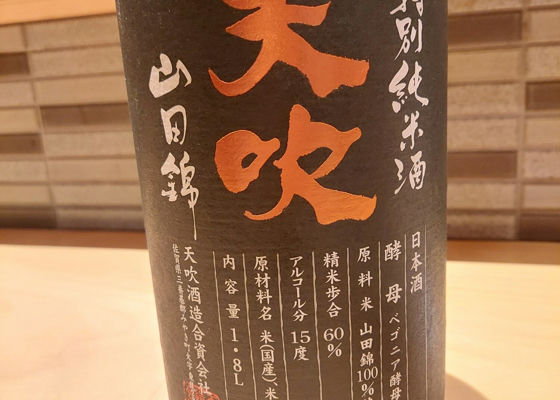 特別純米酒
天吹
山田錦
日本酒
酵母 ベゴニア酵母
原料米 山田錦100%
精米歩合 60%
アルコール分 15度
原材料名 米(国産)、米
内容量 1.8L
天吹酒造合資会社
佐賀県三養基郡みやき町大字